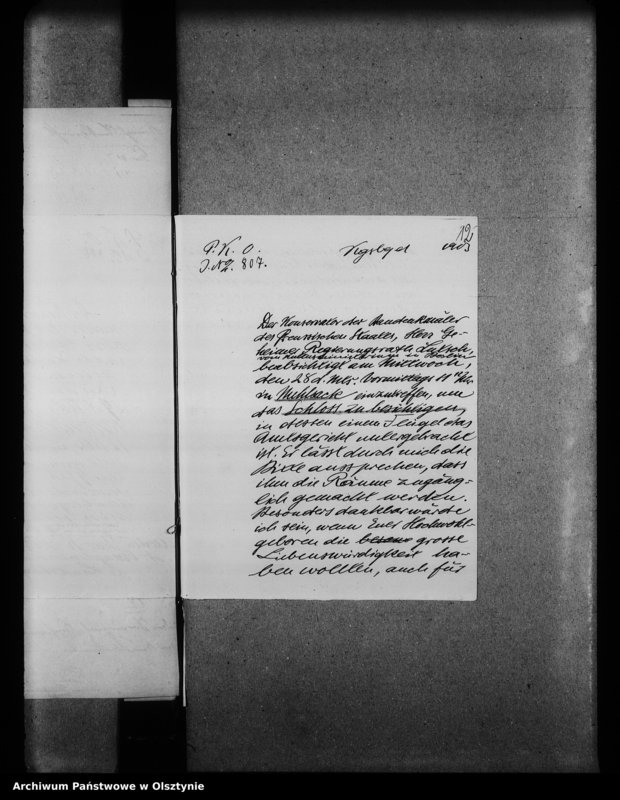 12
P. K. O.
J. № 807.
Kgsbg d
1903
Der Konservator der Baudenkmäler
des Preussischen Staates, Herr Ge-
heimer Regierungsrath Lutsch
vom Kultusministerium in Berlin
beabsichtigt am Mittwoch,
den 28 d. Mts. Vormittags 11 Uhr
in einzutreffen, um
das Schloss zu besichtigen,
in dessen einem Flügel das
Amtsgericht untergebracht
ist. Er lässt durch mich die
Bitte aussprechen, dass
ihm die Räume zugäng-
lich gemacht werden.
Besonders dankbar würde
ich sein, wenn Euer Hochwohl-
geboren die grosse
Liebenswürdigkeit ha-
ben wollten, auch für
Archiwum Państwowe w Olsztynie